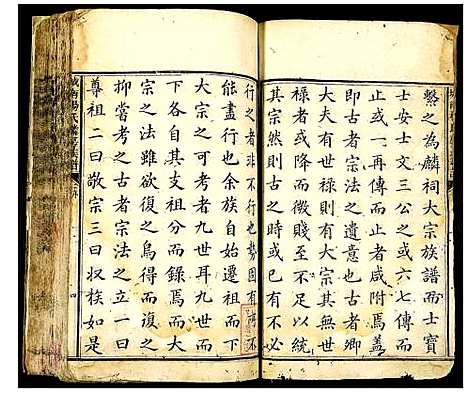 繫之為麟祠大宗族譜而士寶
士安士文三公之或六七傳而
止或一再傳而止者咸附焉蓋
即古者宗法之遺意也古者卿
大夫有世祿則有大宗其後世
祿者或降而微賤至不足以統
其宗然則古之者已有不必
行之者非不行也勢固有
能盡行也余族自始遷祖而下
大宗之可考者九世耳九世而
下各自其支祖分而錄焉而大
宗之法雖欲復之烏得而復之
抑嘗考之古者宗法之立一曰
尊祖二曰敬宗三曰收族如是
四